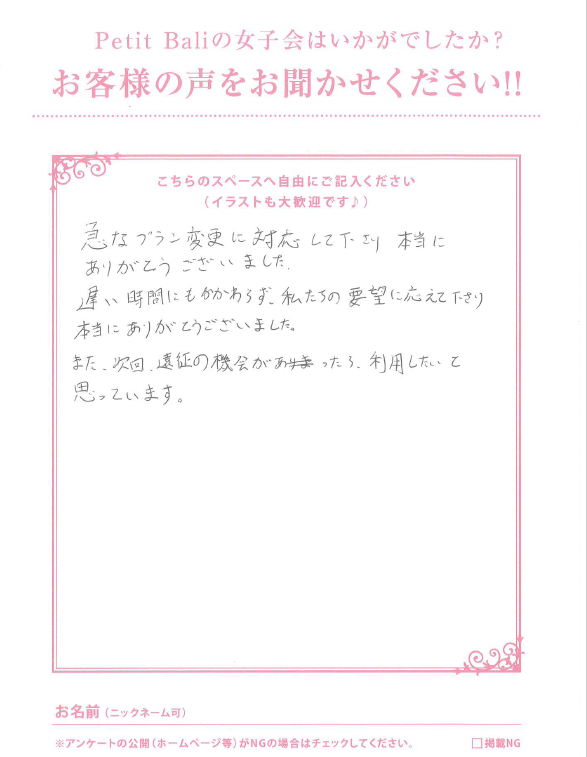 Petit Baliの女子会はいかがでしたか?
お客様の声をお聞かせください!!
こちらのスペースへ自由にご記入ください
(イラストも大歓迎です♪)
急なプラン変更に対応して下さり 本当に
ありがとうございました。
遅い時間にもかかわらず、私たちの要望に応えて下さり
本当にありがとうございました。
また、次回、遠征の機会があったら、利用したいと
思っています。
お名前(ニックネーム可)
※アンケートの公開(ホームページ等)がNGの場合はチェックしてください。 □掲載NG